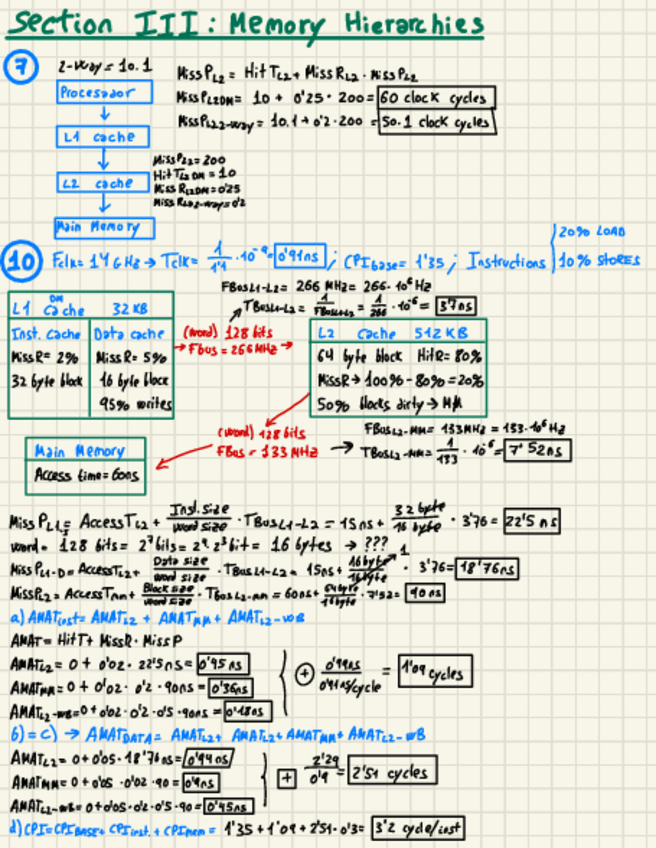 Section III: Memory Hierarchies
7
2-way = 10.1
Procesador
L1 cache
L2 cache
Main Memory
MissPL2 = HitTL2 + MissRL2 · MissPL2
MissPL2DM = 10 + 0'25 · 200 = 60 clock cycles
MissPL2 2-way = 10.1 + 0'2 · 200 = 50.1 clock cycles
MissPL2 = 200
HitTL2 DM = 10
MissRL2DM = 0'25
MissRL2 2-way = 0'2
10
Fclk = 1'1 GHz → Tclk = 1/1'1 · 10^-9 = 0'91ns ; CPIbase = 1'35 ; Instructions
20% LOAD
10% STORES
FBusL1-L2 = 266 MHz = 266·10^6 Hz
TBusL1-L2 = 1/FBusL1-L2 = 1/266 · 10^-6 =
L1 DM Cache 32 KB
Inst. Cache
MissR = 2%
32 byte block
Data cache
MissR = 5%
16 byte block
95% writes
(word) 128 bits
Fbus = 266 MHz
L2 cache 512 KB
64 byte block HitR = 80%
MissR → 100% - 80% = 20%
50% blocks dirty → MM
(word) 128 bits
FBus = 133 MHz
FBusL2-MM = 133MHz = 133·10^6 Hz
TBusL2-MM = 1/133 · 10^-6 = 7'52ns
Main Memory
Access time = 60ns
MissPL1-I = AccessTL2 + Inst.size/word size · TBusL1-L2 = 15ns + 32 byte/16 byte · 3'76 = 22'5 ns
word = 128 bits = 2^7 bits = 2^4 · 2^3 bit = 16 bytes → ???
MissPL1-D = AccessTL2 + Data size/word size · TBusL1-L2 = 15ns + 16byte/16byte 1 · 3'76 = 18'76ns
MissPL2 = AccessTMM + Block size/word size · TBusL2-MM = 60ns + 64byte/16byte · 7'52 = 90ns
a) AMATinst = AMATL2 + AMATMM + AMATL2-WB
AMAT = HitT + MissR · MissP
AMATL2 = 0 + 0'02 · 22'5ns = 0'45ns
AMATMM = 0 + 0'02 · 0'2 · 90ns = 0'36ns
AMATL2-WB = 0 + 0'02 · 0'2 · 0'5 · 90ns = 0'18ns
+ 0'99ns / 0'91ns/cycle = 1'09 cycles
b) = c) → AMATDATA = AMATL2 + AMATL2 + AMATMM + AMATL2-WB
AMATL2 = 0 + 0'05 · 18'76ns = 0'94ns
AMATMM = 0 + 0'05 · 0'02 · 90 = 0'9ns
AMATL2-WB = 0 + 0'05 · 0'2 · 0'5 · 90 = 0'45ns
+ 2'29/0'9 = 2'51 cycles
d) CPI = CPIBASE + CPIinst. + CPImem = 1'35 + 1'09 + 2'51 · 0'3 = 3'2 cycle/inst